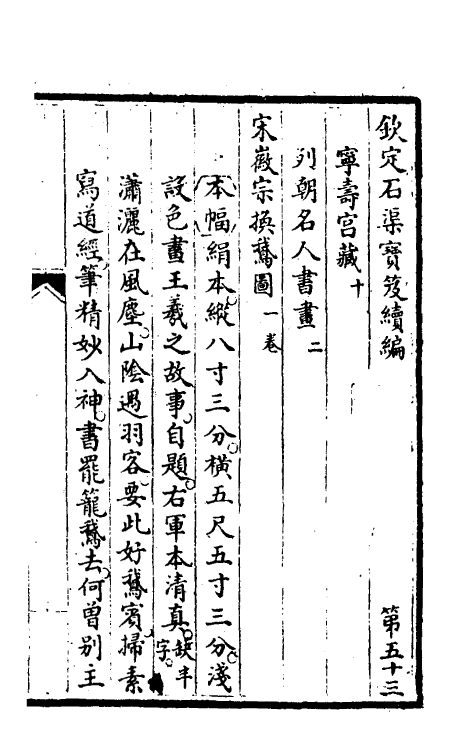 欽定石渠寶笈續編　第五十三
寧壽宮藏十
列朝名人書畫二
宋徽宗換鵞圖一卷
本幅絹本縱八寸三分橫五尺五寸三分淺
設色畫王羲之故事自題右軍本清真缺半字
瀟灑在風塵山陰遇羽客要此好鵞賓掃素
寫道經筆精妙入神書罷籠鵞去何曾別主